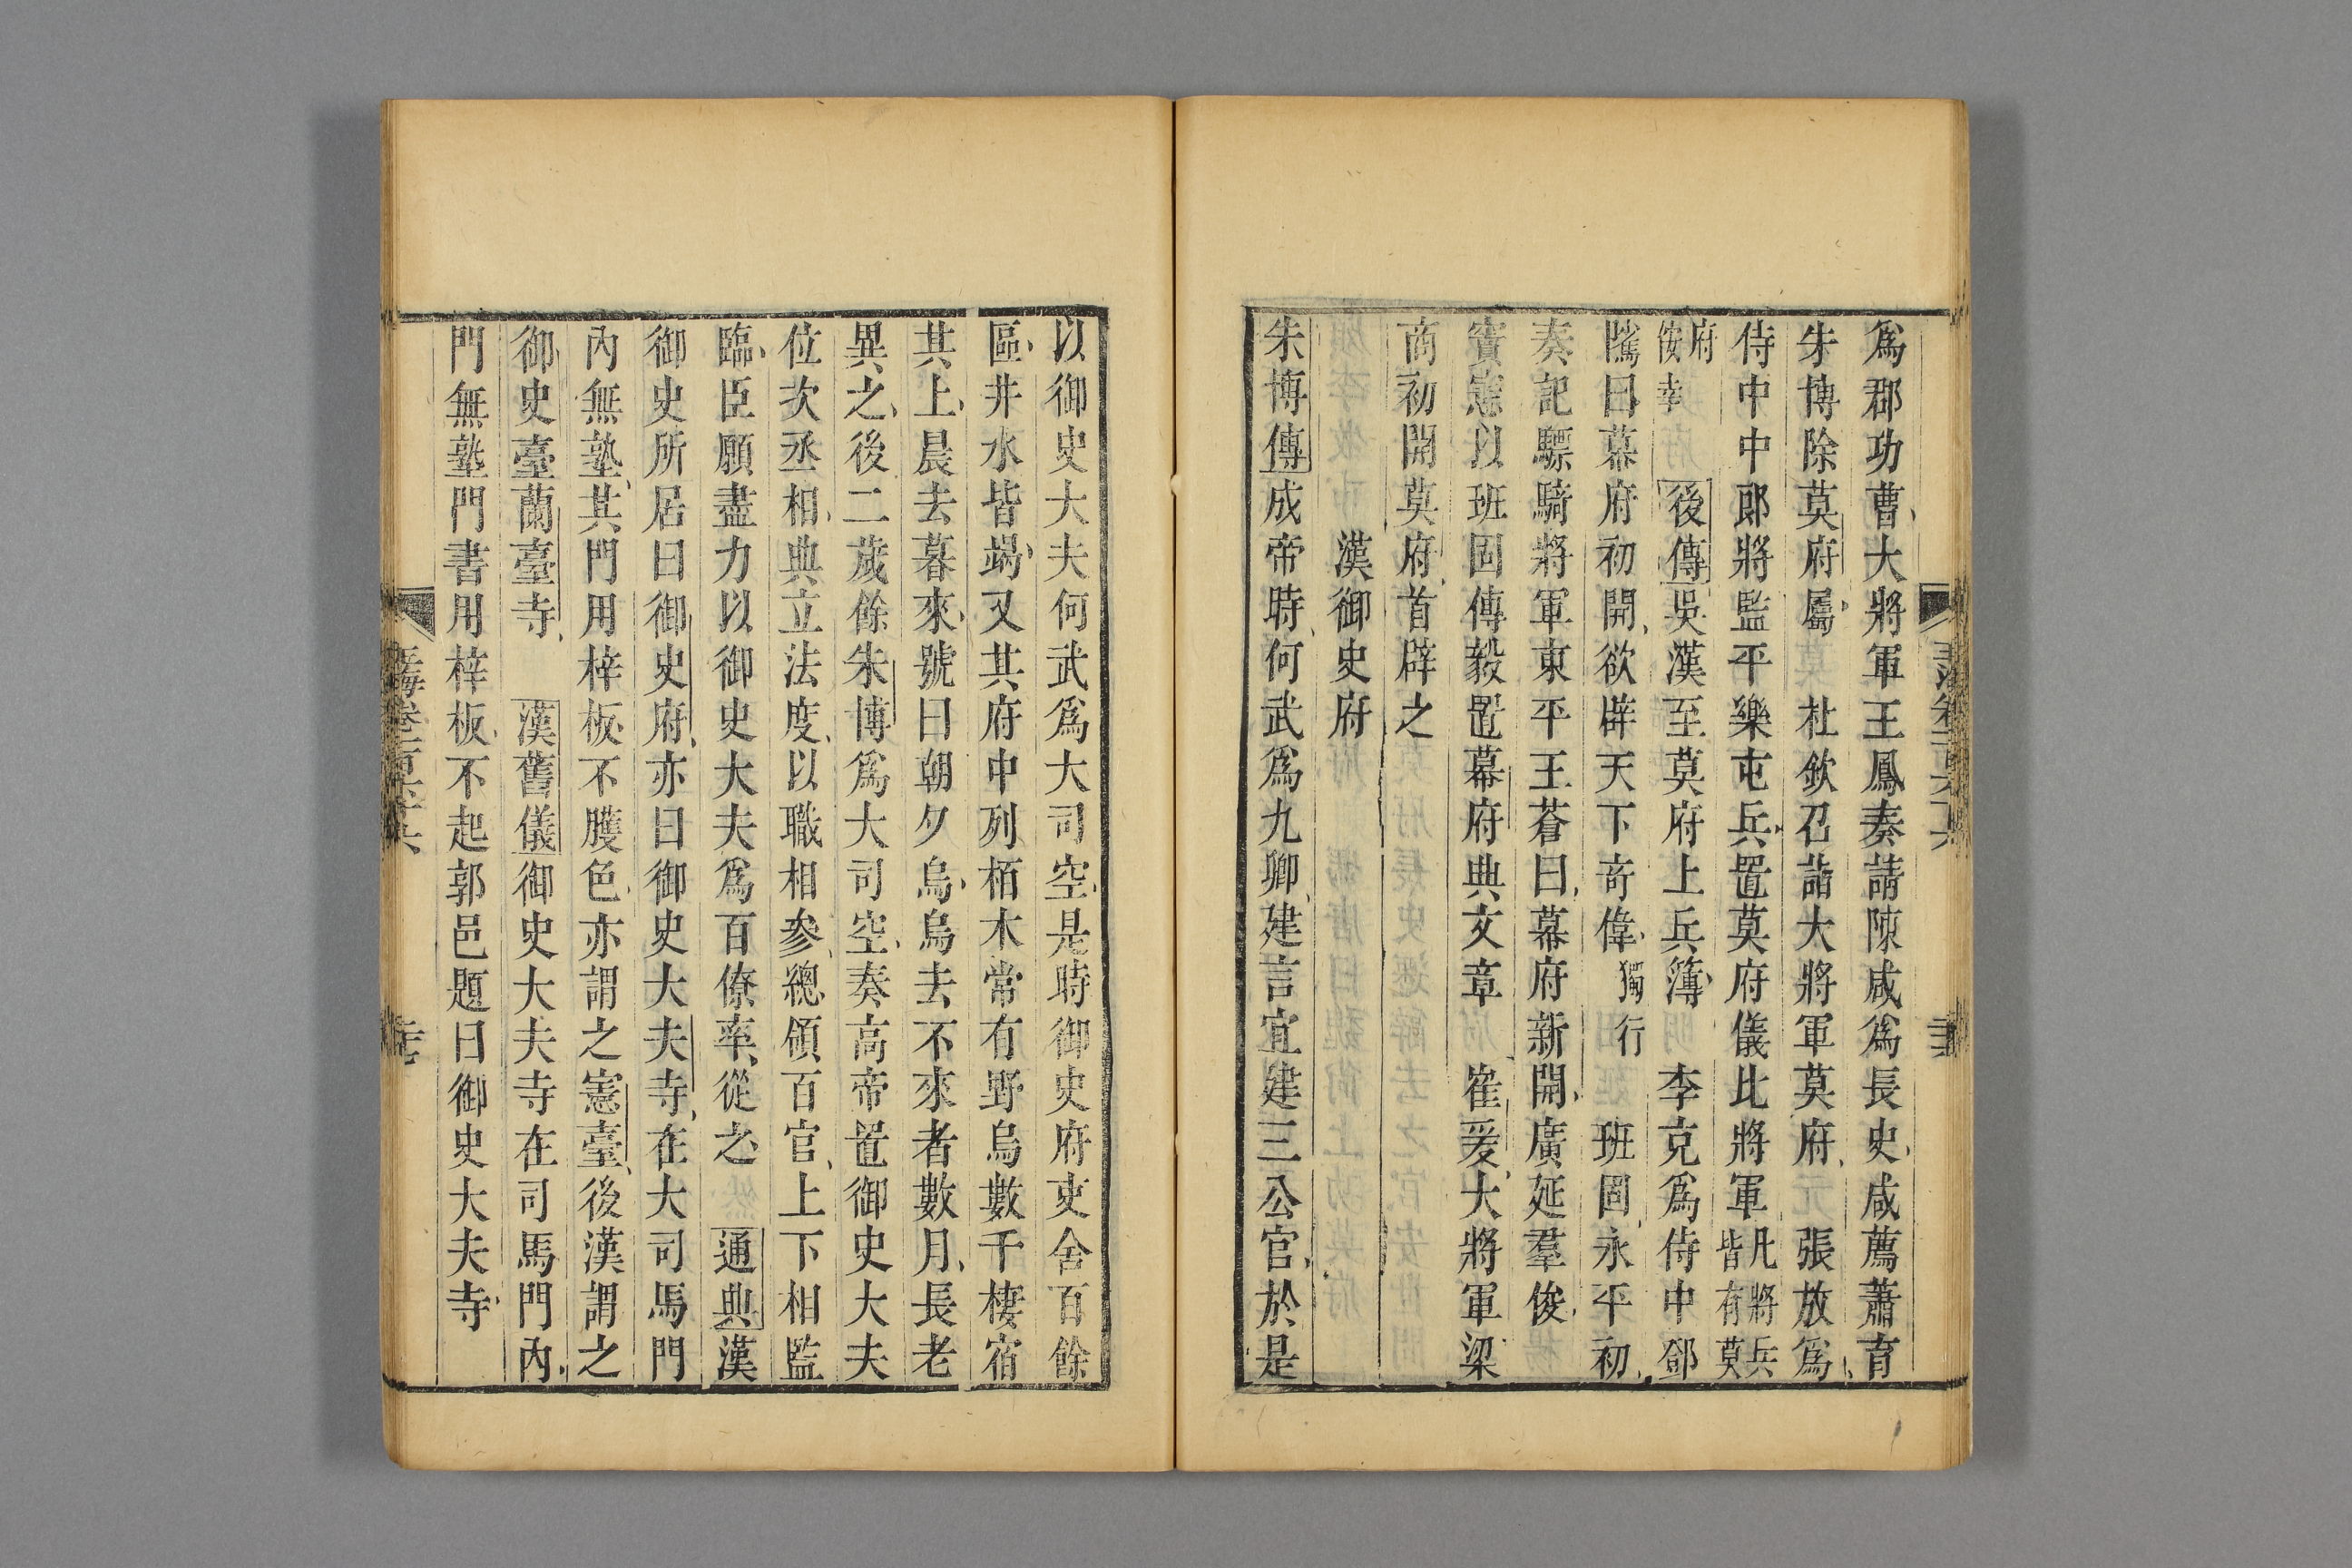 爲郡功曹大將軍王鳳奏請陳咸爲長史咸薦蕭育
朱博除莫府屬　杜欽召詣大將軍莫府　張放爲
侍中中郎將監平樂屯兵置莫府儀比將軍凡將兵皆有莫
府按幸　後傳吳漢至莫府上兵簿　李克爲侍中鄧
騭曰幕府初開欲辟天下奇偉獨行　班固永平初
奏記驃騎將軍東平王蒼曰幕府新開廣延羣俊
竇憲以班固傅毅置幕府典文章　崔爰大將軍梁
商初開莫府首辟之
漢御史府
朱博傳成帝時何武爲九卿建言宜建三公官於是
以御史大夫何武爲大司空是時御史府吏舍百餘
區井水皆竭又其府中列栢木常有野烏數千棲宿
其上晨去暮來號曰朝夕烏烏去不來者數月長老
異之後二歲餘朱博爲大司空奏高帝置御史大夫
位次丞相典立法度以職相參總領百官上下相監
臨臣願盡力以御史大夫爲百僚率從之　通典漢
御史所居曰御史府亦曰御史大夫寺在大司馬門
內無塾其門用梓板不雘色亦謂之憲臺後漢謂之
御史臺蘭臺寺　漢舊儀御史大夫寺在司馬門內
門無塾門書用梓板不起郭邑題曰御史大夫寺